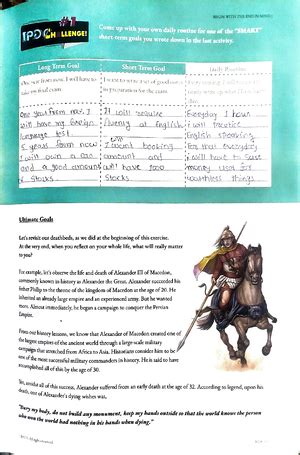 BEGIN WITH THE END IN MIND
IPDC CHALLENGE! #1
Come up with your own daily routine for one of the "SMART"
short-term goals you wrote down in the last activity.
Long Term Goal
Short Term Goal
Daily Routine
One year from now, I will have to
take final exam
One year from now I
will have my foreign
language test
5 years from now
I will own a car
and a good amount
of Stocks
It will require
being at english
I will
booking
amount and
will have 1000
Stocks
Everyday 1 hour
I will practice
English speaking
For that everyday
I will have to
money used for
worthless things
Ultimate Goals
Let's revisit our deathbeds, as we did at the beginning of this exercise.
At the very end, when you reflect on your whole life, what will really matter
to you?
For example, let's observe the life and death of Alexander III of Macedon,
commonly known in history as Alexander the Great. Alexander succeeded his
father Philip to the throne of the kingdom of Macedon at the age of 20. He
inherited an already large empire and an experienced army. But he wanted
more. Almost immediately, he began a campaign to conquer the Persian
Empire.
From our history lessons, we know that Alexander of Macedon created one of
the largest empires of the ancient world through a large-scale military
campaign that stretched from Africa to Asia. Historians consider him to be
one of the most successful military commanders in history. He is said to have
accomplished all of this by the age of 30.
Yet, amidst all of this success, Alexander suffered from an early death at the age of 32. According to legend, upon his
death, one of Alexander's dying wishes was,
"Bury my body, do not build any monument, keep my hands outside so that the world knows the person
who won the world had nothing in his hands when dying."